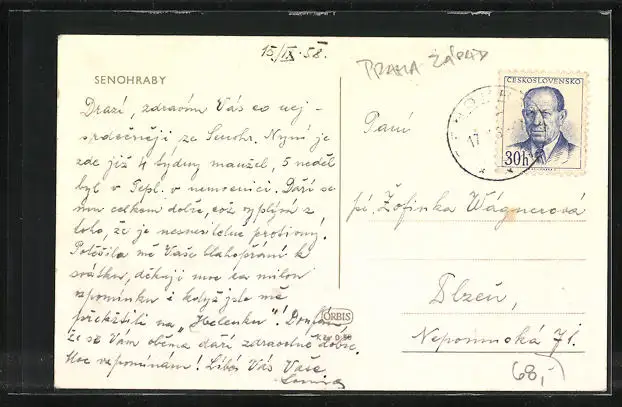 15./IX. 58.
PRAHA ZÁPAD
SENOHRABY
Drazí, zdravím Vás co nej-
srdečněji ze Senohr. Nyní je
zde již 4 týdny manžel, 5 neděl
byl v Tepl. v nemocnici. Daří se
mu celkem dobře, což vyplývá z
toho, že je nesnesitelně protivný.
Potěšila mě Vaše blahopřání k
svátku, děkuji moc za milou
vzpomínku i když jste mě
překřtili na „Helenku"! Doufám
že se Vám oběma daří zdravotně dobře.
Moc vzpomínám! Líbá Vás Vaše
ČESKOSLOVENSKO
30h
17
Paní
pí. Žofinka Wágnerová
Plzeň,
Nepomucká 71.
ORBIS
68,-